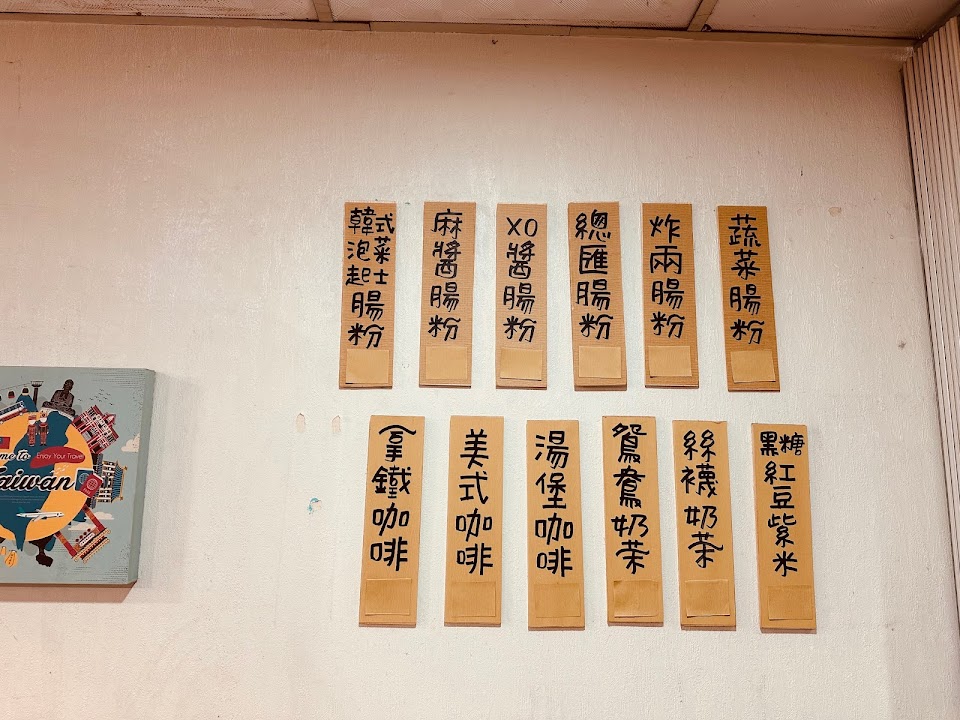 蔬菜腸粉
炸兩腸粉
總匯腸粉
XO醬腸粉
麻醬腸粉
韓式泡菜起士腸粉
黑糖紅豆紫米
絲襪奶茶
鴛鴦奶茶
湯堡咖啡
美式咖啡
拿鐵咖啡
me to
Enjoy Your Travel
aiwan